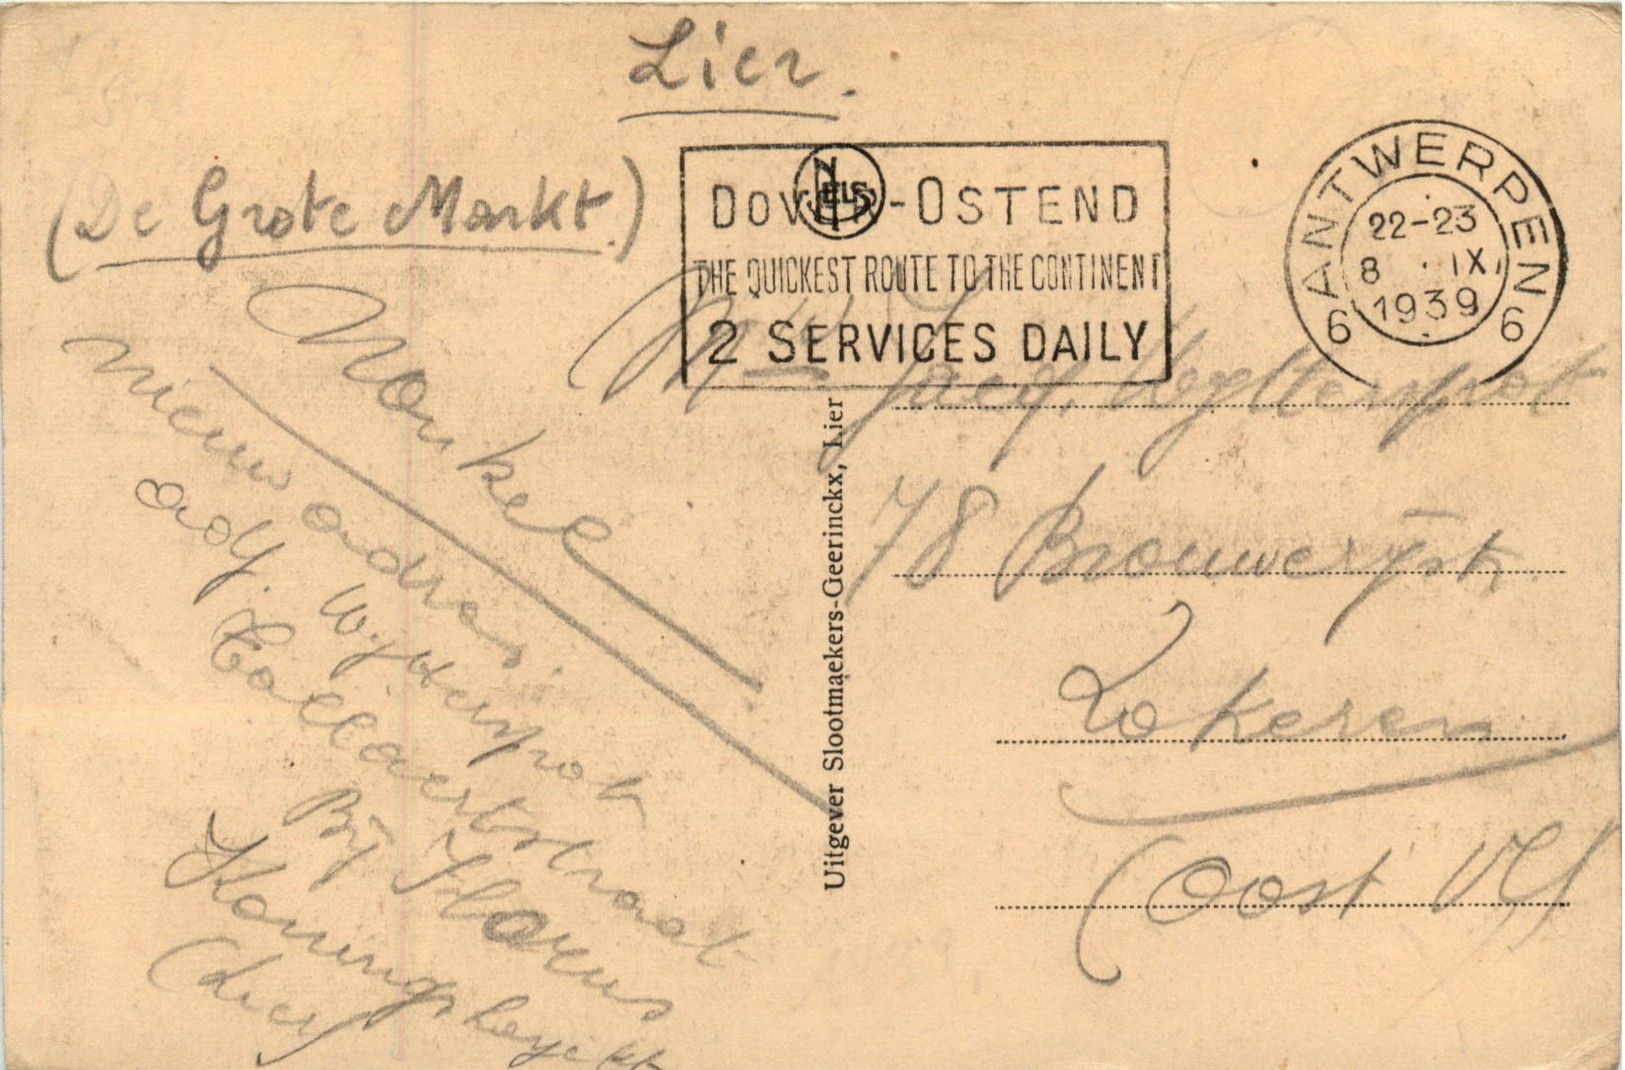 Lier.
(De Grote Markt.)
NELS
DOVER-OSTEND
THE QUICKEST ROUTE TO THE CONTINENT
2 SERVICES DAILY
ANTWERPEN
6 6
22-23
8 · IX
1939
Nonkel
nieuw adres:
adj. Wyttersprot
Collaertstraat
Bij Florus
Koningshoyckt
(Lier)
Uitgever Slootmaekers-Geerinckx, Lier
Jacq. Wyttersprot
78 Brouwerijstr.
Lokeren
(Oost Vl)